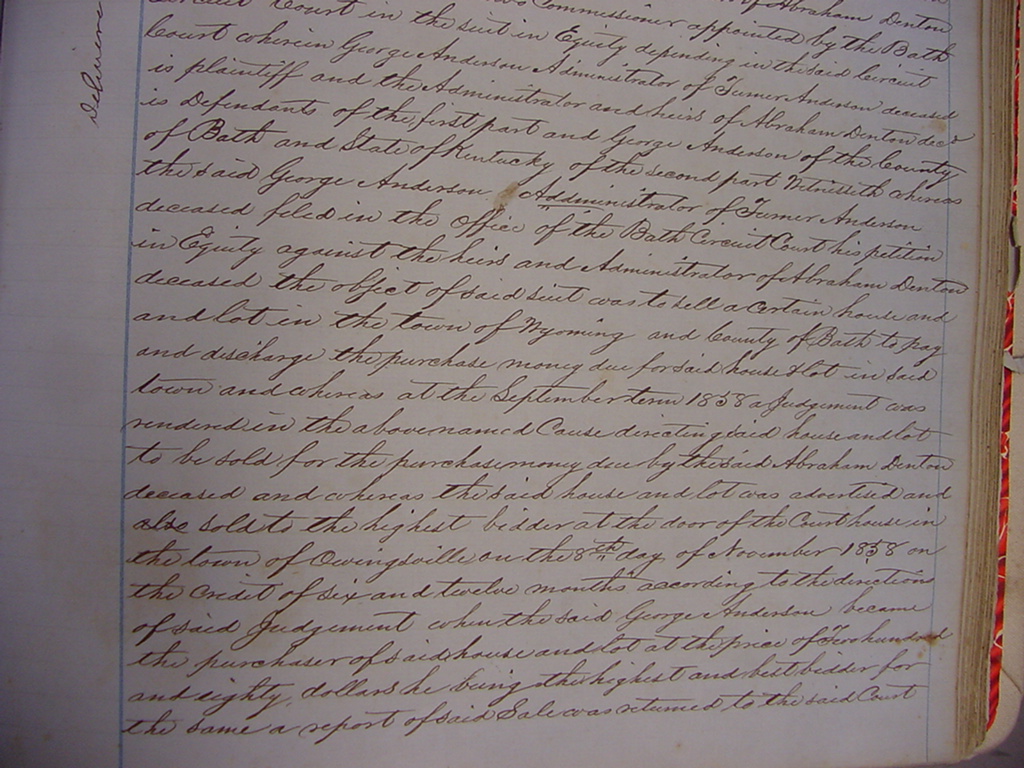 of Abraham Denton
Commissioner appointed by the Bath
Circuit Court in the suit in Equity depending in the said Circuit
Court wherein George Anderson Administrator of Turner Anderson deceased
is plaintiff and the Administrator and heirs of Abraham Denton decd
is Defendants of the first part and George Anderson of the County
of Bath and State of Kentucky of the second part Witnesseth whereas
the said George Anderson Addministrator of Turner Anderson
deceased filed in the office of the Bath Circuit Court his petition
in Equity against the heirs and Administrator of Abraham Denton
deceased the object of said suit was to sell a certain house and
and lot in the town of Wyoming and County of Bath to pay
and discharge the purchase money due for said house & lot in said
town and whereas at the September term 1858 a Judgement was
rendered in the above named Cause directing said house and lot
to be sold for the purchase money due by the said Abraham Denton
deceased and whereas the said house and lot was advertised and
also sold to the highest bidder at the door of the Court house in
the town of Owingsville on the 8th day of November 1858 on
the credit of six and twelve months according to the directions
of said Judgement when the said George Anderson became
the purchaser of said house and lot at the price of Two hundred
and eighty dollars he being the highest and best bidder for
the same a report of said Sale was returned to the said Court